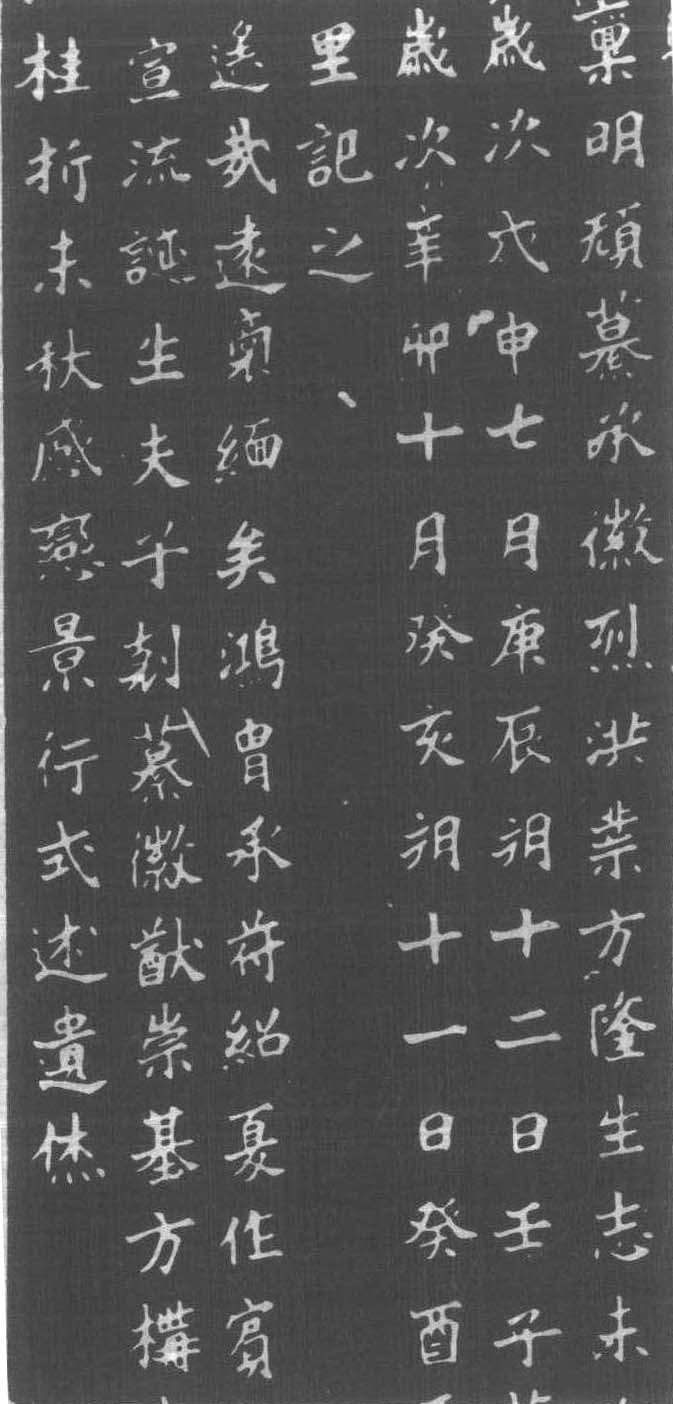 稟明頑慕承徽烈洪業方隆生志未
歲次戊申七月庚辰朔十二日壬子
歲次辛卯十月癸亥朔十一日癸酉
里記之
遙哉遠裔緬矣鴻胄承苻紹夏作賓
宣流誕生夫子剋纂徽猷崇基方構
桂折未秋感戀景行式述遺烋